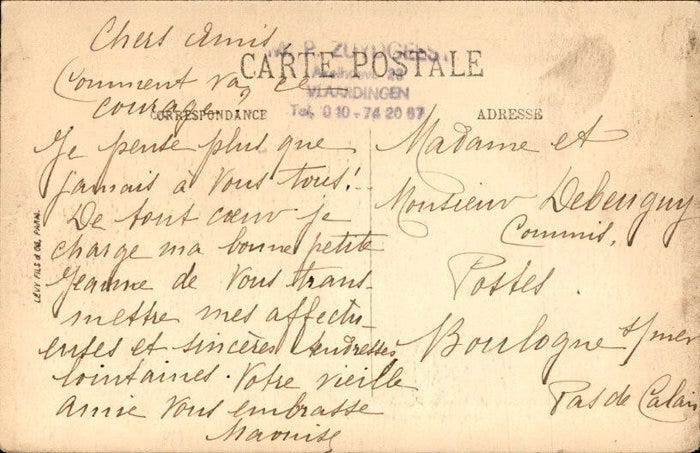 Chers Amis
CARTE POSTALE
VLAARDINGEN
Tel. 010-74 20 67
Comment va ce
courage?
CORRESPONDANCE
Je pense plus que
jamais à vous tous!
De tout cœur je
charge ma bonne petite
Jeanne de vous trans-
mettre mes affectu-
euses et sincères tendresses
lointaines. Votre vieille
amie vous embrasse
ADRESSE
Madame et
Monsieur Debeuguy
Commis,
Postes.
Boulogne s/mer
Pas de Calais
LÉVY FILS & Cie, PARIS.